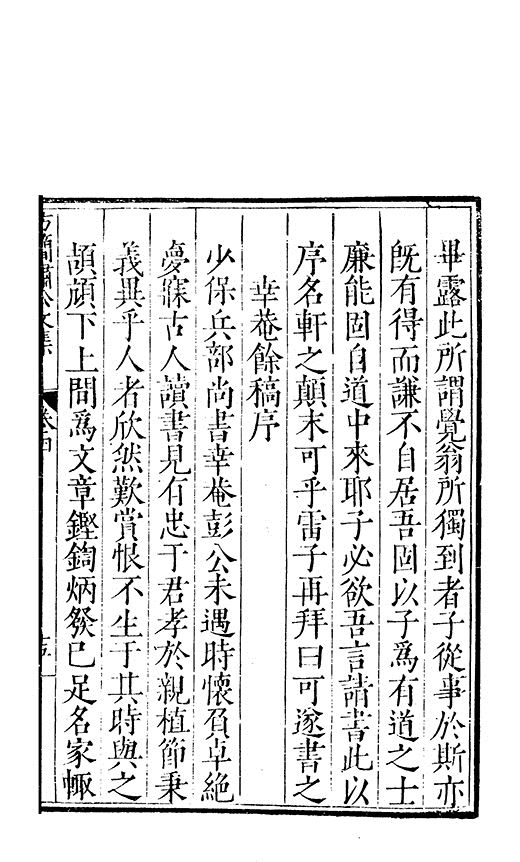 畢露此所謂覺翁所獨到者子從事於斯亦
旣有得而謙不自居吾固以子爲有道之士
廉能固自道中來耶子必欲吾言請書此以
序名軒之顛末可乎雷子再拜曰可遂書之
幸菴餘稿序
少保兵部尚書幸菴彭公未遇時懷負卓絶
夢寐古人讀書見有忠于君孝於親植節秉
義異乎人者欣然歎賞恨不生于其時與之
頡頏下上間爲文章鏗鍧炳發已足名家輙
方簡肅公文集
卷四